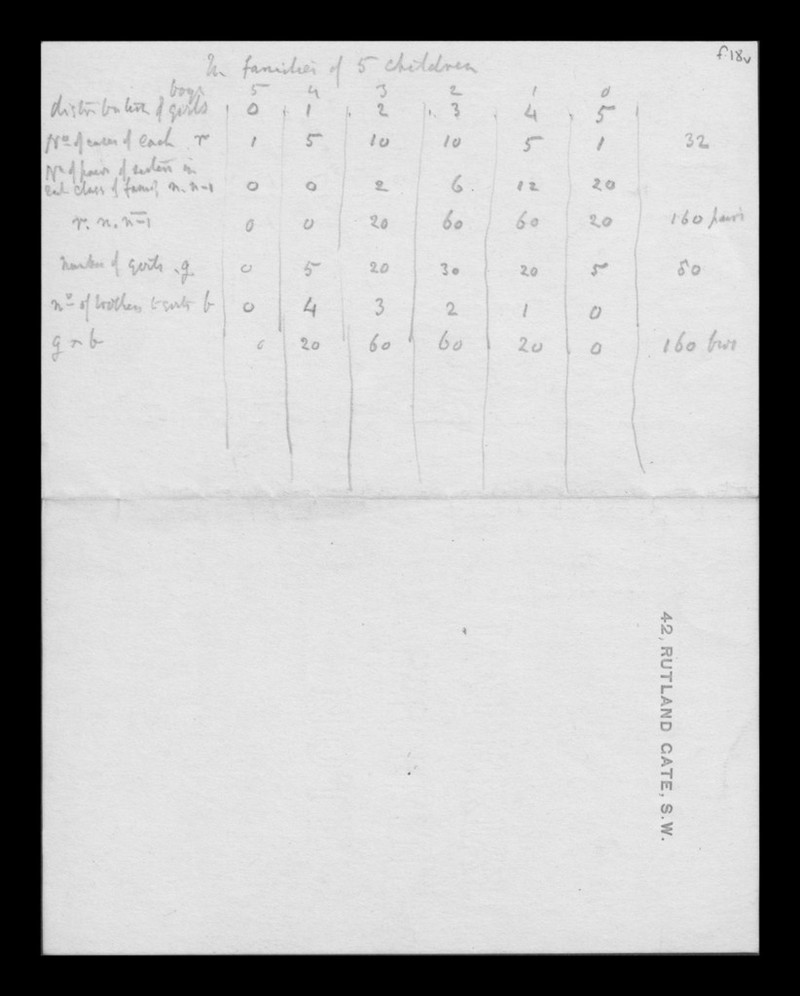 f 18v
In families of 5 children
boys 5 4 3 2 1 0
distribution of girls 0 1 2 3 4 5
No of cases of each r 1 5 10 10 5 1 32
No of pairs of sisters in
each class of family n. n-1 0 0 2 6 12 20
r. n. n-1 0 0 20 60 60 20 160 pairs
number of girls . g 0 5 20 30 20 5 80
no of brothers to girls b 0 4 3 2 1 0
g × b 0 20 60 60 20 0 160
42, RUTLAND GATE, S.W.